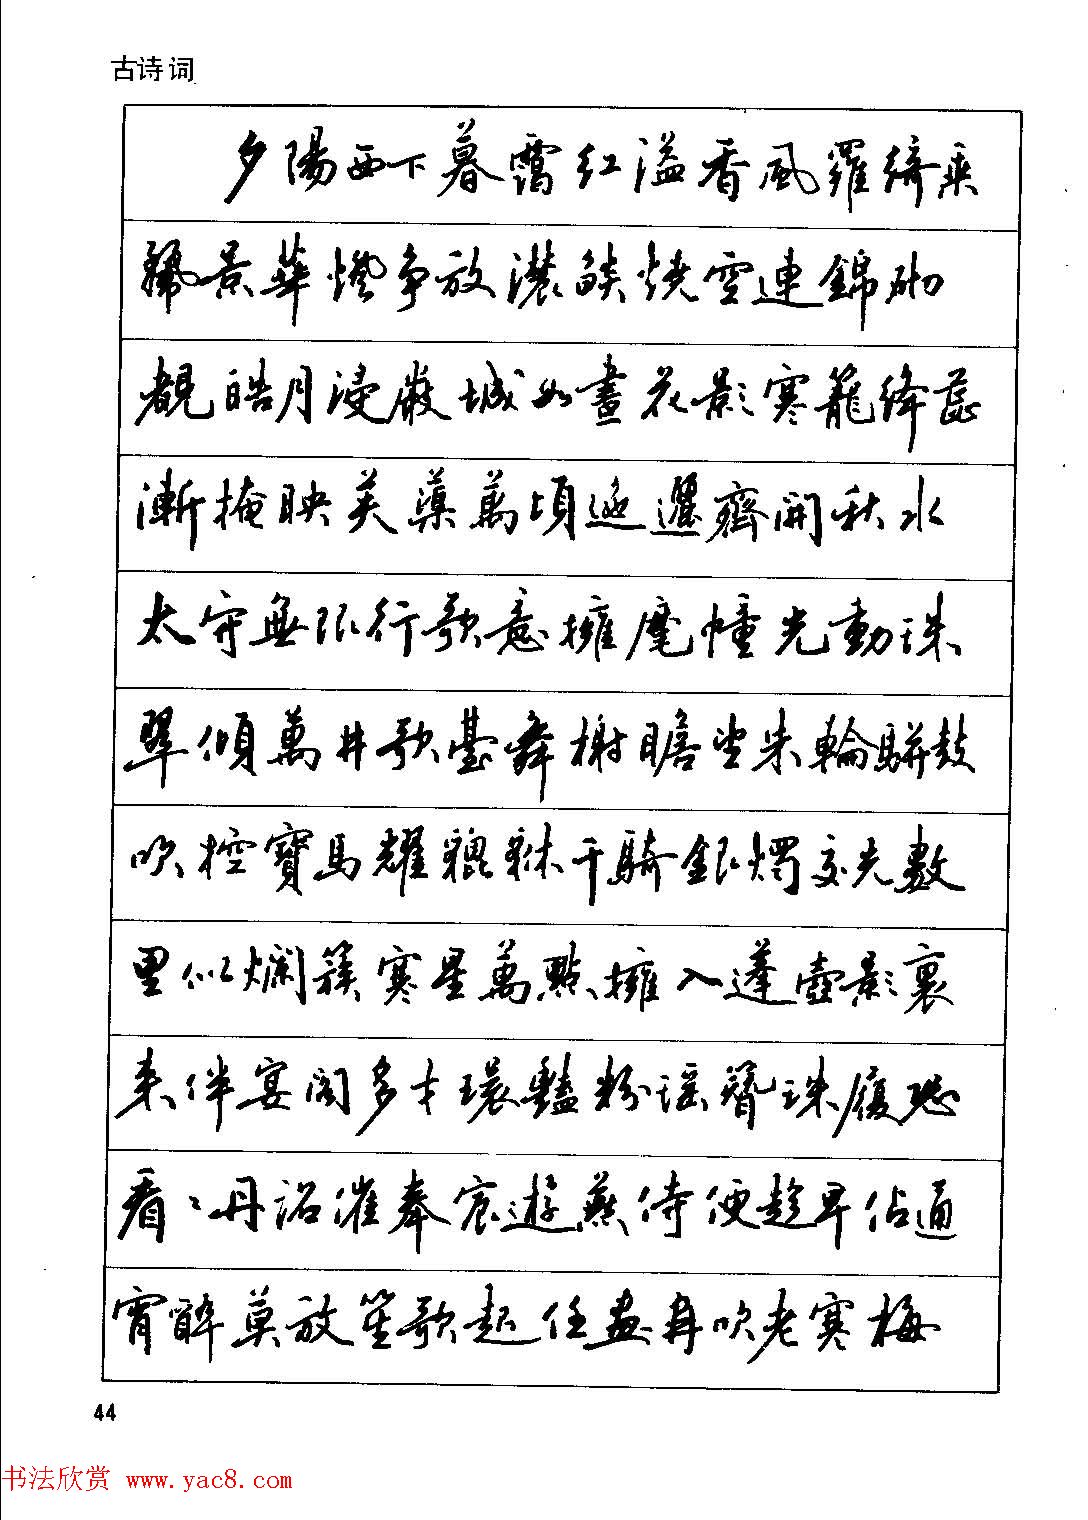 古诗词
夕陽西下暮靄紅溢香風羅綺乘
麗景華燈争放濃燄燒空連錦砌
覩皓月浸嚴城如畫花影寒籠絳蕊
漸掩映芙蕖萬頃迤邐齊開秋水
太守無限行歌意擁麾幢光動珠
翠傾萬井歌臺舞榭瞻望朱輪駢鼓
吹控寶馬耀貔貅千騎銀燭交光數
里似爛簇寒星萬點擁入蓬壺影裏
来伴宴閣多才環豔粉瑶簪珠履恐
看看丹詔催奉宸遊燕侍便趨早佔通
宵醉莫放笙歌起任畫角吹老寒梅
44
书法欣赏 www.yac8.com